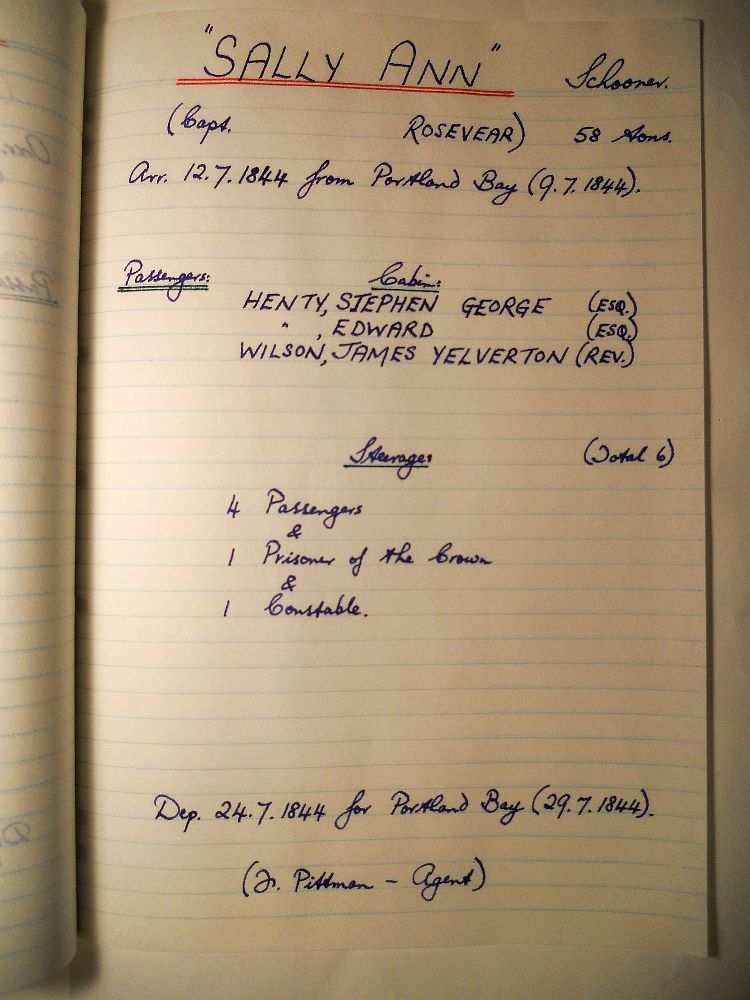 "SALLY ANN" Schooner.
(Capt. ROSEVEAR) 58 tons.
Arr. 12.7.1844 from Portland Bay (9.7.1844).
Passengers: Cabin:
HENTY, STEPHEN GEORGE (ESQ.)
" , EDWARD (ESQ.)
WILSON, JAMES YELVERTON (REV.)
Steerage: (Total 6)
4 Passengers
&
1 Prisoner of the Crown
&
1 Constable.
Dep. 24.7.1844 for Portland Bay (29.7.1844).
Pittman - Agent)